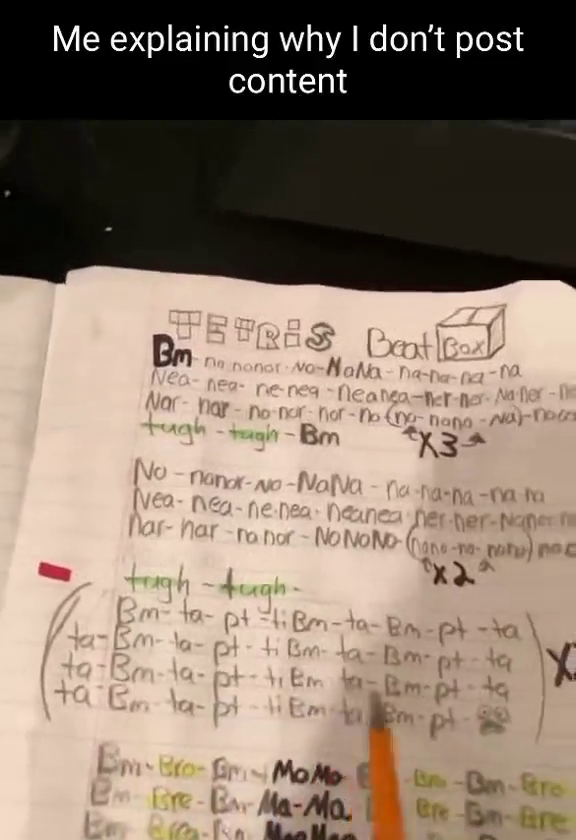 Me explaining why I don't post
content
TETRIS Beat Box
Bm-na nanar-No-NaNa-na-na-na-na
Nea-nea-ne-nea-neanea-ner-ner-Na ner-
Nar-nar-no-nar-nor-no (no-nana-Na)-
tugh-tugh-Bm X3
No-nanar-No-NaNa-na-na-na-na na
Nea-nea-ne-nea-neanea ner-ner-
nar-nar-na nor-NoNoNo-
X2
tugh-tugh-
Bm-ta-pt-ti Bm-ta-Bm-pt-ta
ta-Bm-ta-pt-ti Bm-ta-Bm-pt-ta
ta-Bm-ta-pt-ti Bm ta-Bm-pt-ta
ta-Bm-ta-pt-ti Bm-ta Bm-pt-
X
Bm-Bro-Bm-MoMo -Bro-Bm-Bro
Bm-Bre-Bm-Ma-Ma. Bre-Bm-Bre
Bm